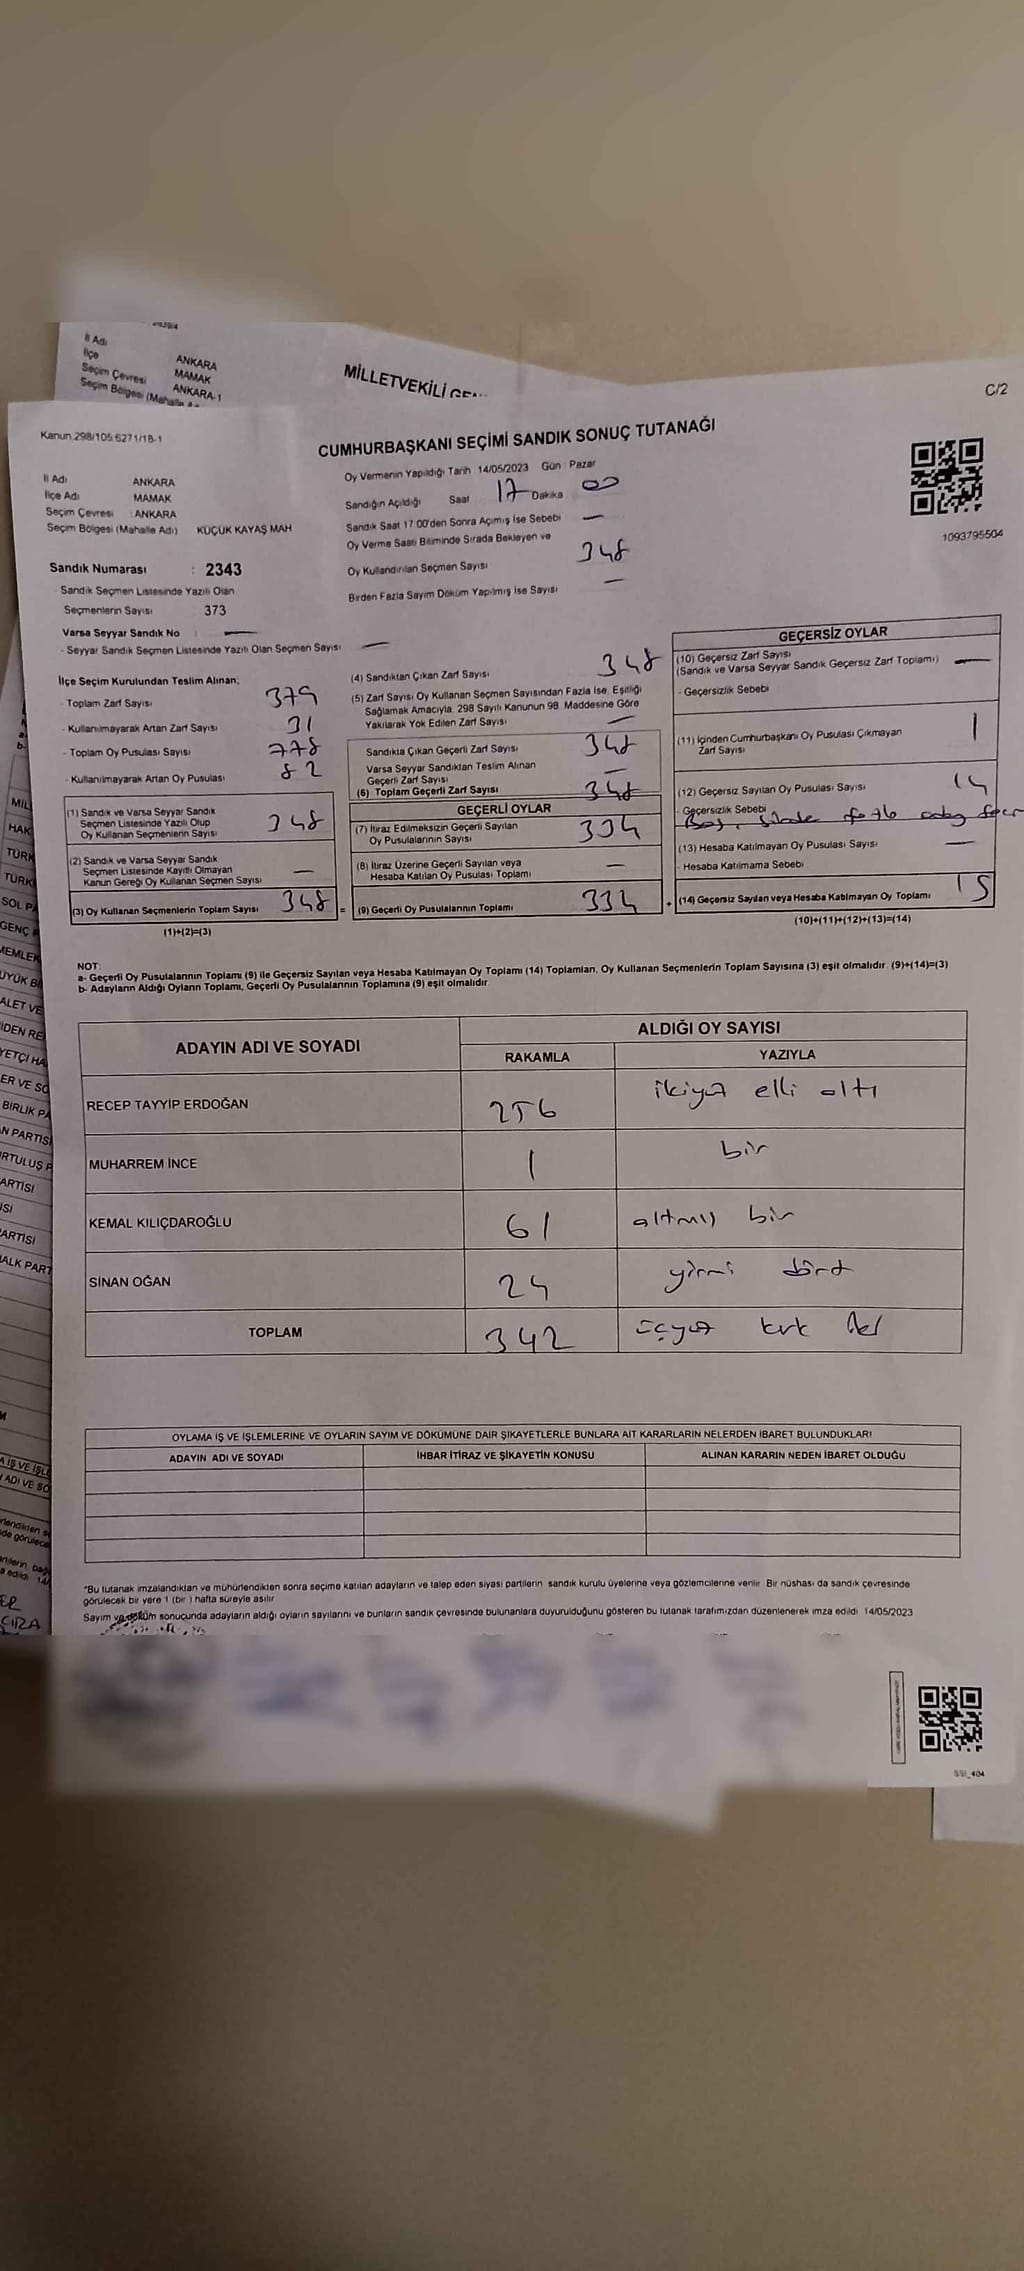 İl Adı
İlçe
ANKARA
Seçim Çevresi
MAMAK
Seçim Bölgesi (Mahalle
ANKARA-1
MİLLETVEKİLİ
C/2
Kanun:298/105.6271/18-1
CUMHURBAŞKANI SEÇİMİ SANDIK SONUÇ TUTANAĞI
İl Adı ANKARA
İlçe Adı MAMAK
Seçim Çevresi : ANKARA
Seçim Bölgesi (Mahalle Adı) KÜÇÜK KAYAŞ MAH
Oy Vermenin Yapıldığı Tarih 14/05/2023 Gün Pazar
Sandığın Açıldığı Saat 17 Dakika 00
Sandık Saat 17:00'den Sonra Açımış İse Sebebi —
Oy Verme Saati Bitiminde Sırada Bekleyen ve
Oy Kullandırılan Seçmen Sayısı 348
Birden Fazla Sayım Döküm Yapılmış İse Sayısı —
1093795504
Sandık Numarası : 2343
- Sandık Seçmen Listesinde Yazılı Olan
Seçmenlerin Sayısı 373
Varsa Seyyar Sandık No : —
- Seyyar Sandık Seçmen Listesinde Yazılı Olan Seçmen Sayısı —
İlçe Seçim Kurulundan Teslim Alınan;
- Toplam Zarf Sayısı 379
- Kullanılmayarak Artan Zarf Sayısı 31
- Toplam Oy Pusulası Sayısı 778
- Kullanılmayarak Artan Oy Pusulası 82
(1) Sandık ve Varsa Seyyar Sandık
Seçmen Listesinde Yazılı Olup
Oy Kullanan Seçmenlerin Sayısı 348
(2) Sandık ve Varsa Seyyar Sandık
Seçmen Listesinde Kayıtlı Olmayan
Kanun Gereği Oy Kullanan Seçmen Sayısı —
(3) Oy Kullanan Seçmenlerin Toplam Sayısı 348 =
(1)+(2)=(3)
(4) Sandıktan Çıkan Zarf Sayısı 348
(5) Zarf Sayısı Oy Kullanan Seçmen Sayısından Fazla İse, Eşitliği
Sağlamak Amacıyla, 298 Sayılı Kanunun 98. Maddesine Göre
Yakılarak Yok Edilen Zarf Sayısı —
Sandıkta Çıkan Geçerli Zarf Sayısı 348
Varsa Seyyar Sandıktan Teslim Alınan
Geçerli Zarf Sayısı —
(6) Toplam Geçerli Zarf Sayısı 348
GEÇERLİ OYLAR
(7) İtiraz Edilmeksizin Geçerli Sayılan
Oy Pusulalarının Sayısı 334
(8) İtiraz Üzerine Geçerli Sayılan veya
Hesaba Katılan Oy Pusulası Toplamı —
(9) Geçerli Oy Pusulalarının Toplamı 334 +
GEÇERSİZ OYLAR
(10) Geçersiz Zarf Sayısı
(Sandık ve Varsa Seyyar Sandık Geçersiz Zarf Toplamı) —
- Geçersizlik Sebebi
(11) İçinden Cumhurbaşkanı Oy Pusulası Çıkmayan
Zarf Sayısı 1
(12) Geçersiz Sayılan Oy Pusulası Sayısı 14
- Geçersizlik Sebebi
Boş,
(13) Hesaba Katılmayan Oy Pusulası Sayısı —
- Hesaba Katılmama Sebebi
(14) Geçersiz Sayılan veya Hesaba Katılmayan Oy Toplamı 15
(10)+(11)+(12)+(13)=(14)
NOT:
a- Geçerli Oy Pusulalarının Toplamı (9) ile Geçersiz Sayılan veya Hesaba Katılmayan Oy Toplamı (14) Toplamları, Oy Kullanan Seçmenlerin Toplam Sayısına (3) eşit olmalıdır. (9)+(14)=(3)
b- Adayların Aldığı Oyların Toplamı, Geçerli Oy Pusulalarının Toplamına (9) eşit olmalıdır.
ADAYIN ADI VE SOYADI
ALDIĞI OY SAYISI
RAKAMLA YAZIYLA
RECEP TAYYİP ERDOĞAN 256 ikiyüz elli altı
MUHARREM İNCE 1 bir
KEMAL KILIÇDAROĞLU 61 altmış bir
SİNAN OĞAN 24 yirmi dört
TOPLAM 342 üçyüz kırk iki
OYLAMA İŞ VE İŞLEMLERİNE VE OYLARIN SAYIM VE DÖKÜMÜNE DAİR ŞİKAYETLERLE BUNLARA AİT KARARLARIN NELERDEN İBARET BULUNDUKLARI
ADAYIN ADI VE SOYADI İHBAR İTİRAZ VE ŞİKAYETİN KONUSU ALINAN KARARIN NEDEN İBARET OLDUĞU
*Bu tutanak imzalandıktan ve mühürlendikten sonra seçime katılan adayların ve talep eden siyasi partilerin sandık kurulu üyelerine veya gözlemcilerine verilir. Bir nüshası da sandık çevresinde
görülecek bir yere 1 (bir ) hafta süreyle asılır
Sayım ve döküm sonucunda adayların aldığı oyların sayılarını ve bunların sandık çevresinde bulunanlara duyurulduğunu gösteren bu tutanak tarafımızdan düzenlenerek imza edildi. 14/05/2023
SSI_404